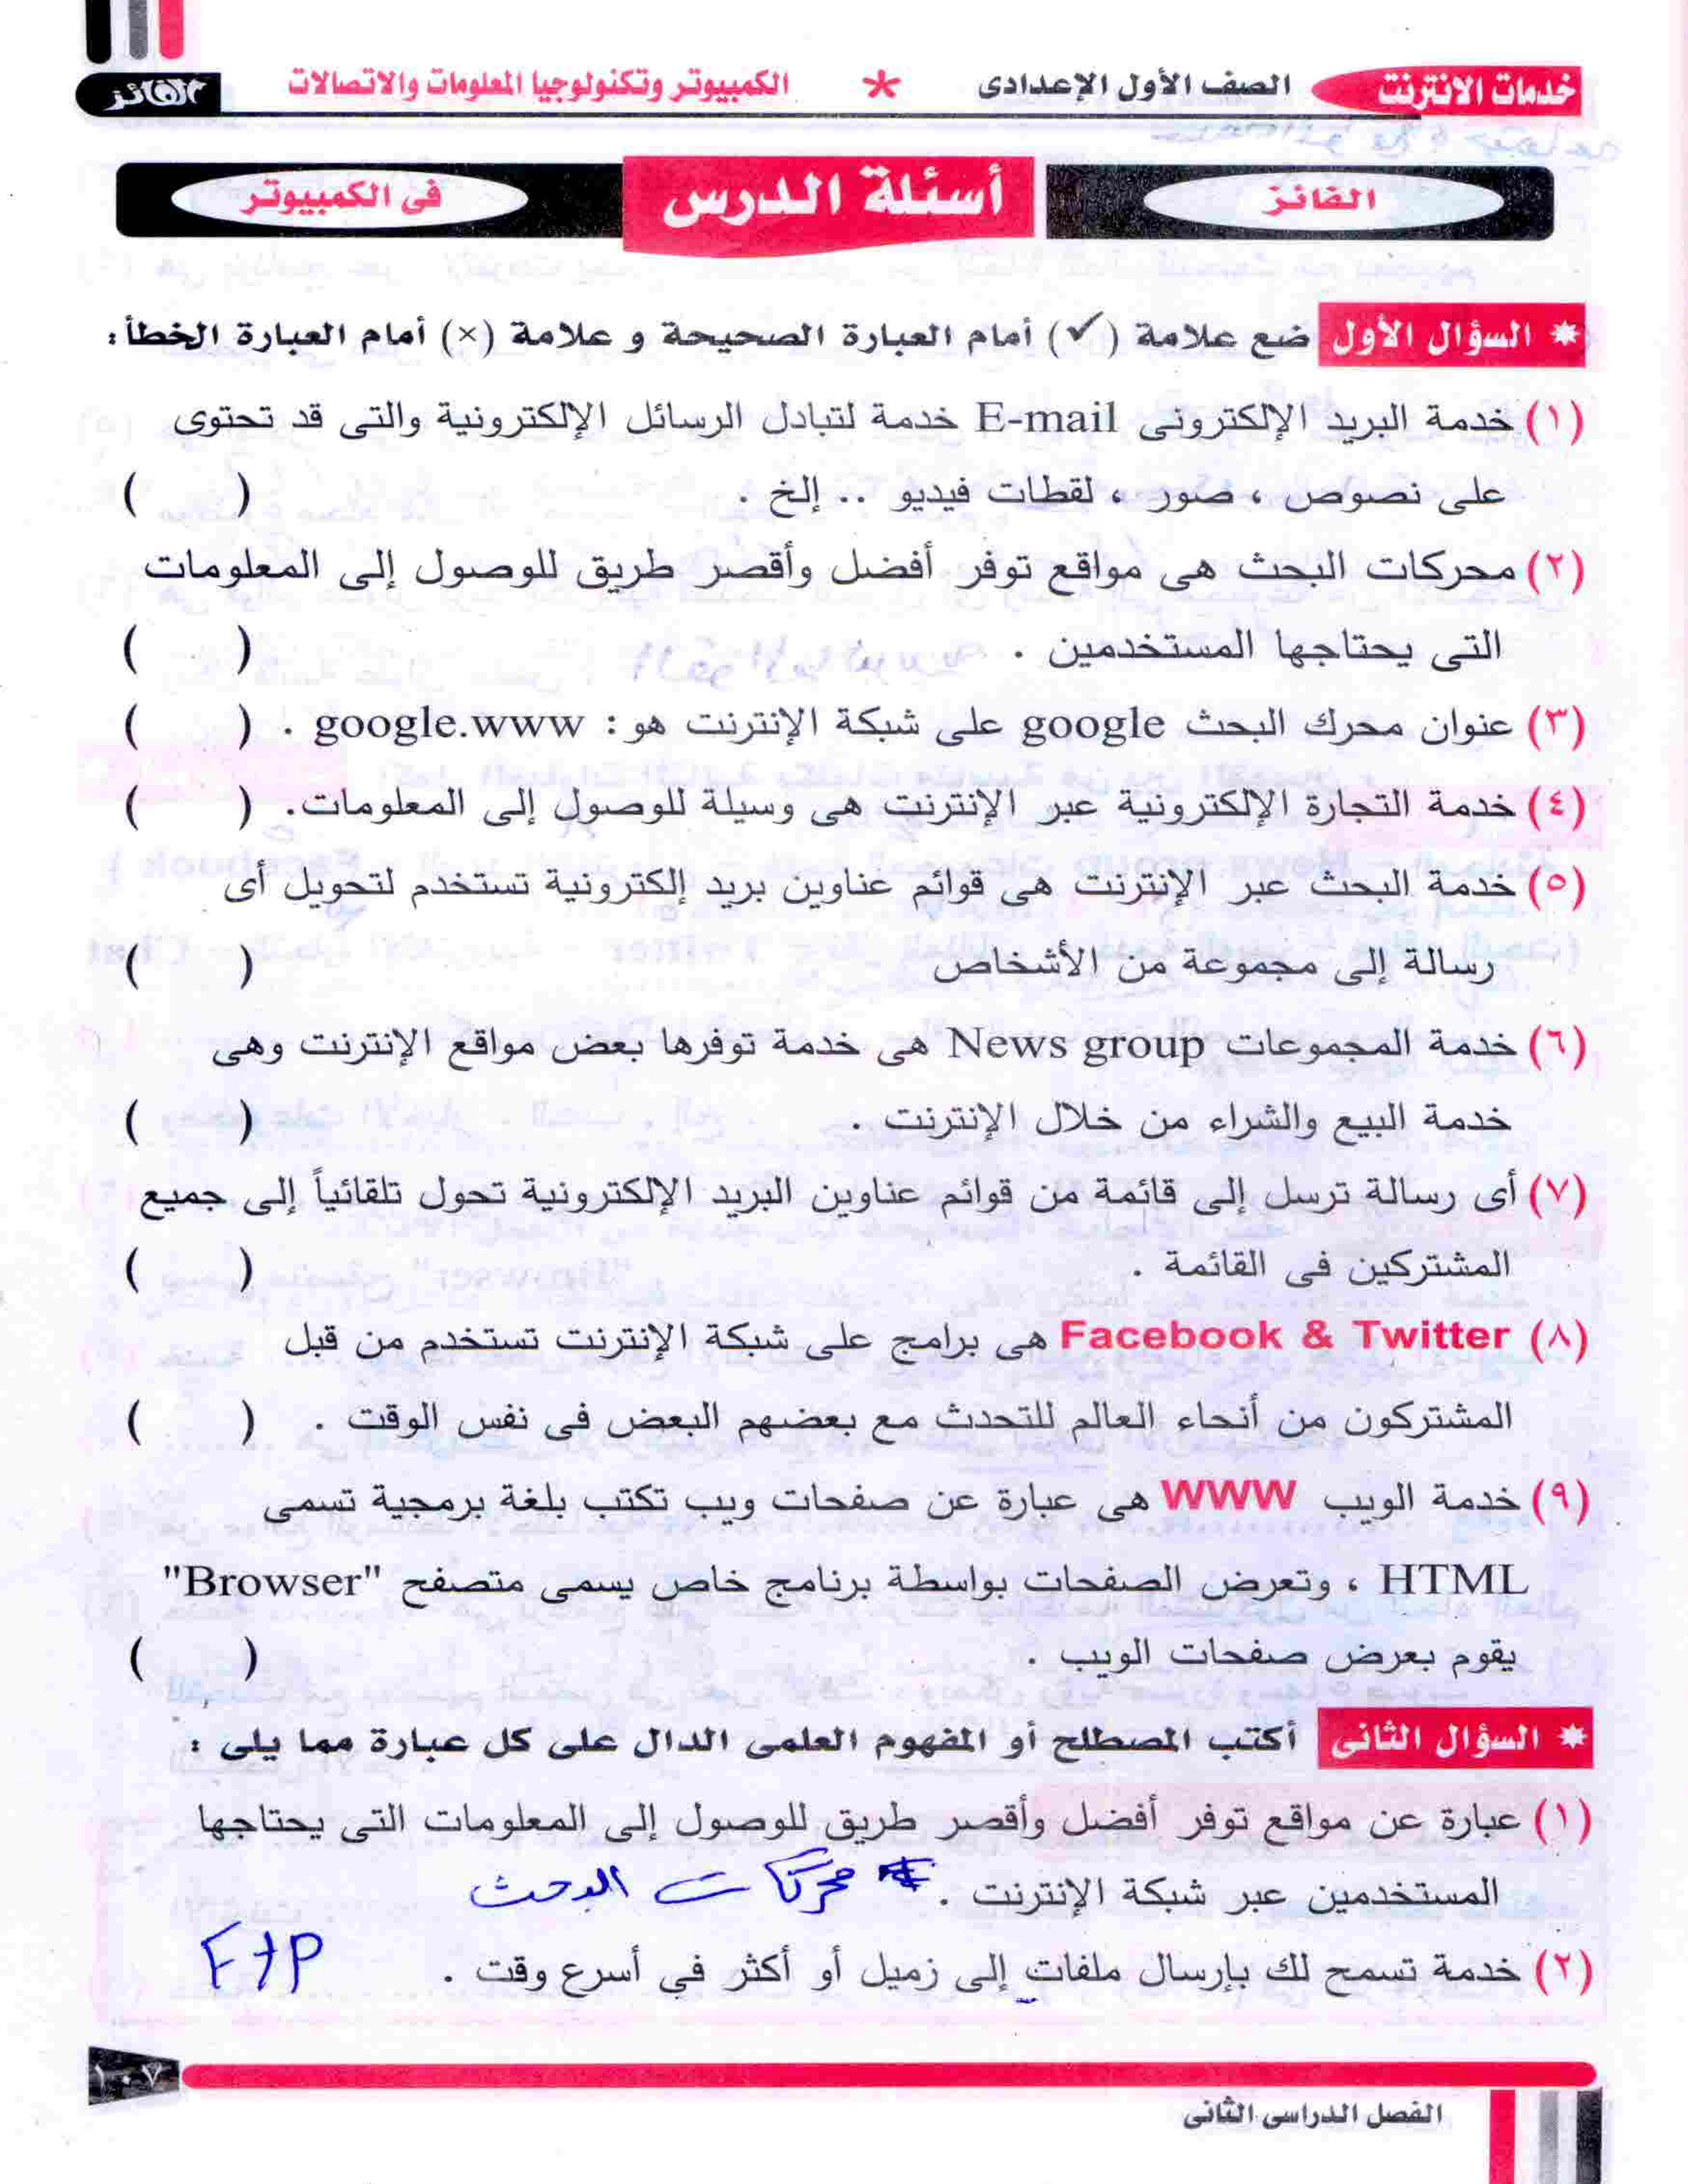 خدمات الانترنت الصف الأول الإعدادى * الكمبيوتر وتكنولوجيا المعلومات والاتصالات الفائز
الفائز أسئلة الدرس فى الكمبيوتر
* السؤال الأول ضع علامة (✓) أمام العبارة الصحيحة و علامة (×) أمام العبارة الخطأ:
(١) خدمة البريد الإلكترونى E-mail خدمة لتبادل الرسائل الإلكترونية والتى قد تحتوى
على نصوص ، صور ، لقطات فيديو .. إلخ . ( )
(٢) محركات البحث هى مواقع توفر أفضل وأقصر طريق للوصول إلى المعلومات
التى يحتاجها المستخدمين . ( )
(٣) عنوان محرك البحث google على شبكة الإنترنت هو: google.www . ( )
(٤) خدمة التجارة الإلكترونية عبر الإنترنت هى وسيلة للوصول إلى المعلومات. ( )
(٥) خدمة البحث عبر الإنترنت هى قوائم عناوين بريد إلكترونية تستخدم لتحويل أى
رسالة إلى مجموعة من الأشخاص ( )
(٦) خدمة المجموعات News group هى خدمة توفرها بعض مواقع الإنترنت وهى
خدمة البيع والشراء من خلال الإنترنت . ( )
(٧) أى رسالة ترسل إلى قائمة من قوائم عناوين البريد الإلكترونية تحول تلقائياً إلى جميع
المشتركين فى القائمة . ( )
(٨) Facebook & Twitter هى برامج على شبكة الإنترنت تستخدم من قبل
المشتركون من أنحاء العالم للتحدث مع بعضهم البعض فى نفس الوقت . ( )
(٩) خدمة الويب WWW هى عبارة عن صفحات ويب تكتب بلغة برمجية تسمى
HTML ، وتعرض الصفحات بواسطة برنامج خاص يسمى متصفح "Browser"
يقوم بعرض صفحات الويب . ( )
* السؤال الثانى أكتب المصطلح أو المفهوم العلمى الدال على كل عبارة مما يلى :
(١) عبارة عن مواقع توفر أفضل وأقصر طريق للوصول إلى المعلومات التى يحتاجها
المستخدمين عبر شبكة الإنترنت . محركات البحث
(٢) خدمة تسمح لك بإرسال ملفات إلى زميل أو أكثر في أسرع وقت . FtP
١٠٧
الفصل الدراسى الثانى